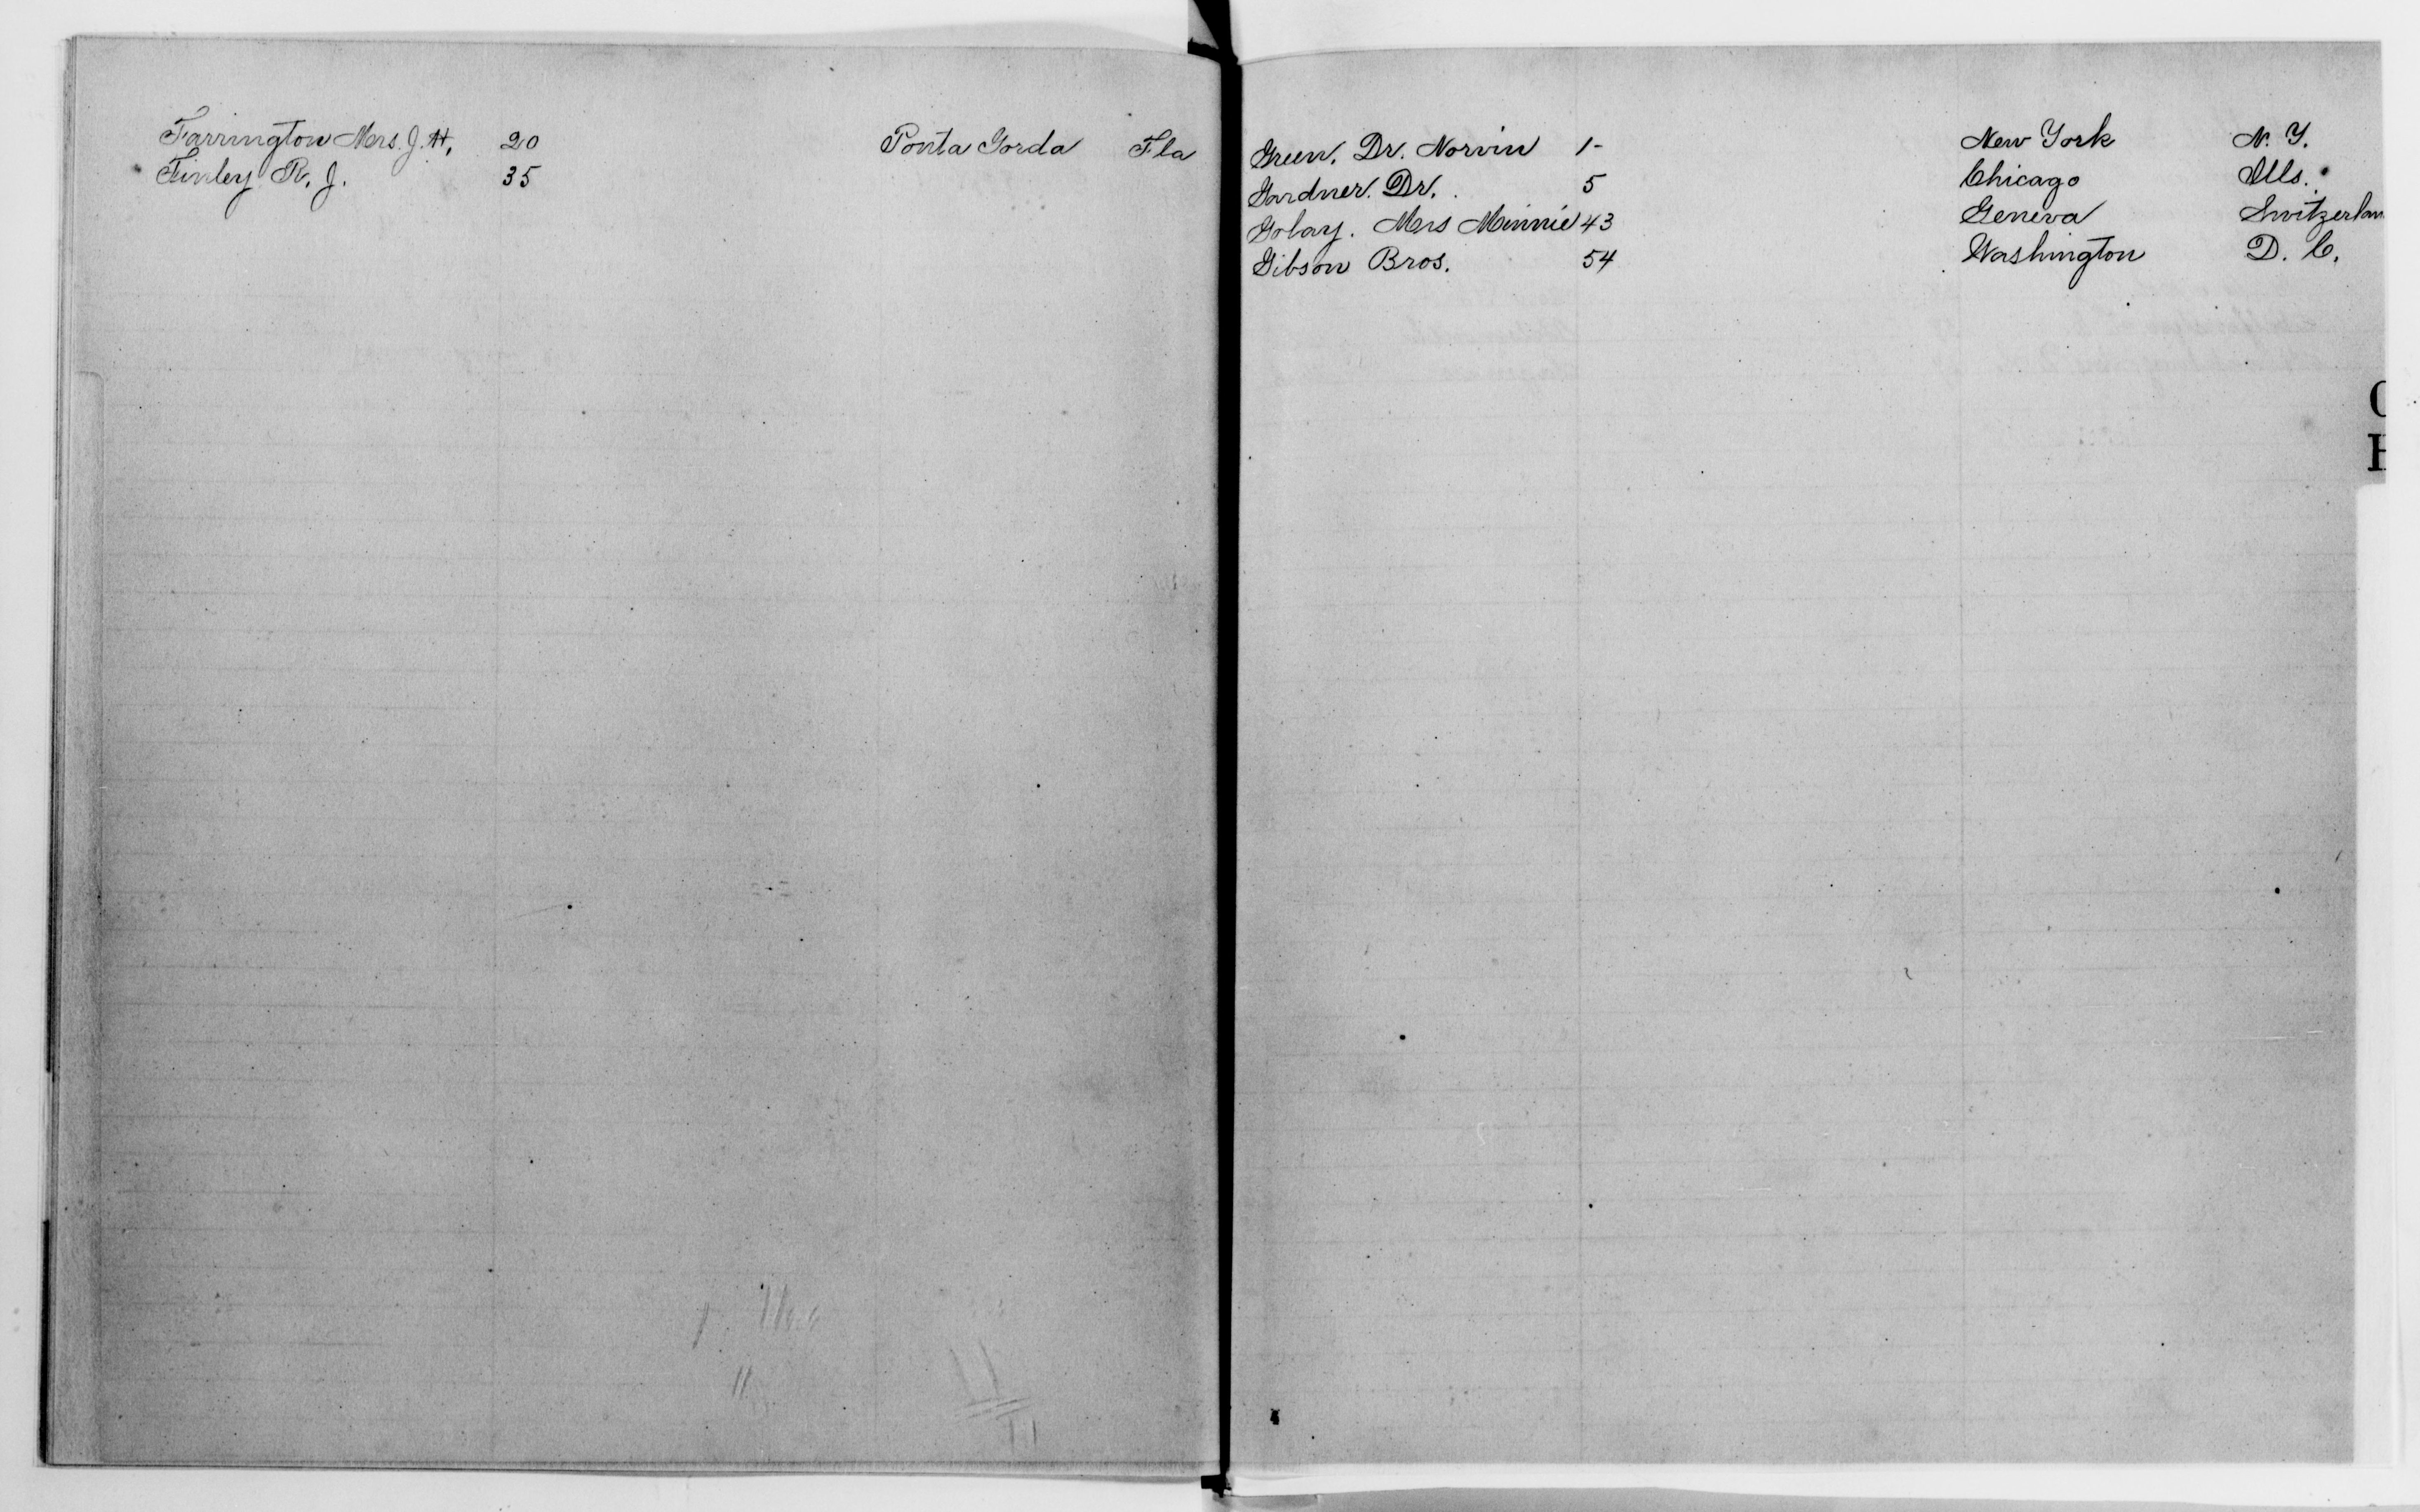 Farrington Mrs. J. H, 20 Ponta Gorda Fla
Finley R, J. 35
Green. Dr. Norvin 1- New York N. Y.
Gardner. Dr. 5 Chicago Ills.
Golay. Mrs Minnie 43 Geneva Switzerlan
Gibson Bros. 54 Washington D. C.